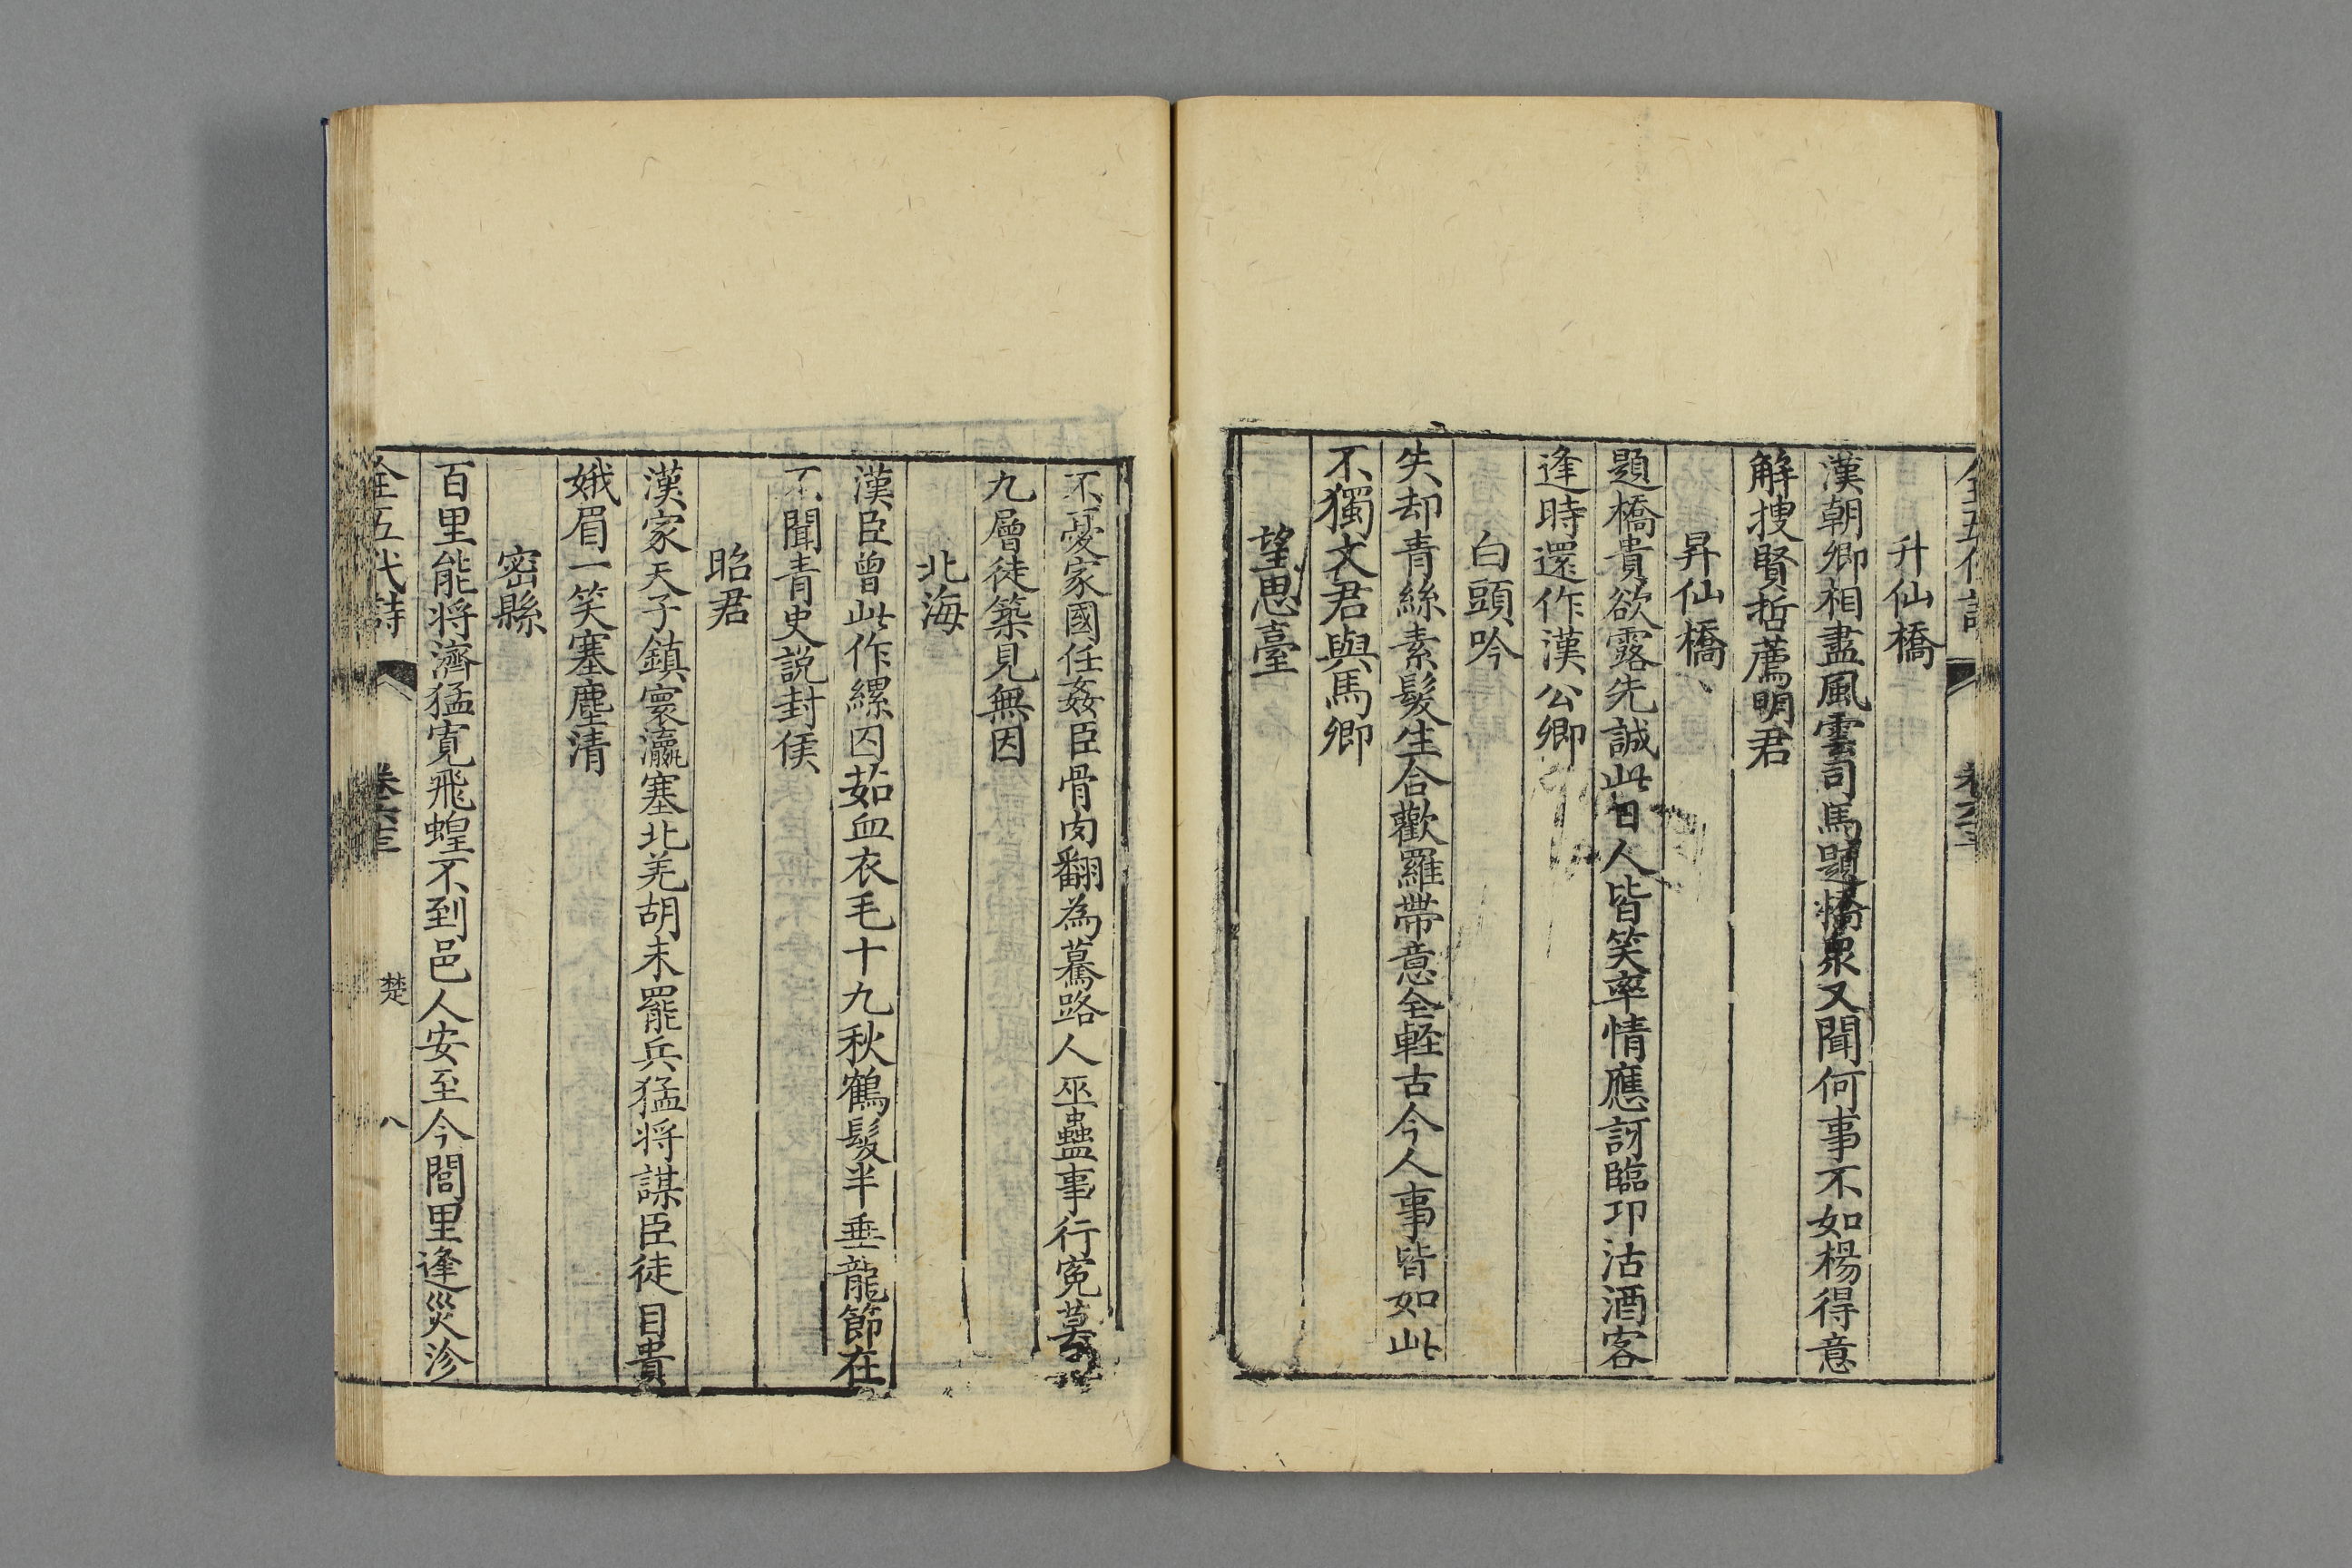 升仙橋
漢朝卿相盡風雲司馬題橋衆又聞何事不如楊得意
解搜賢哲薦明君
昇仙橋
題橋貴欲露先誠此日人皆笑率情應訝臨卭沽酒客
逢時還作漢公卿
白頭吟
失却青絲素髮生合歡羅帶意全輕古今人事皆如此
不獨文君與馬卿
望思臺
不憂家國任姦臣骨肉翻為驀路人巫蠱事行冤莫
九層徒築見無因
北海
漢臣曾此作縲囚茹血衣毛十九秋鶴髮半垂龍節在
不聞青史說封侯
昭君
漢家天子鎮寰瀛塞北羌胡未罷兵猛将謀臣徒自貴
娥眉一笑塞塵清
密縣
百里能将濟猛寛飛蝗不到邑人安至今閭里逢災沴
全五代詩 楚 八